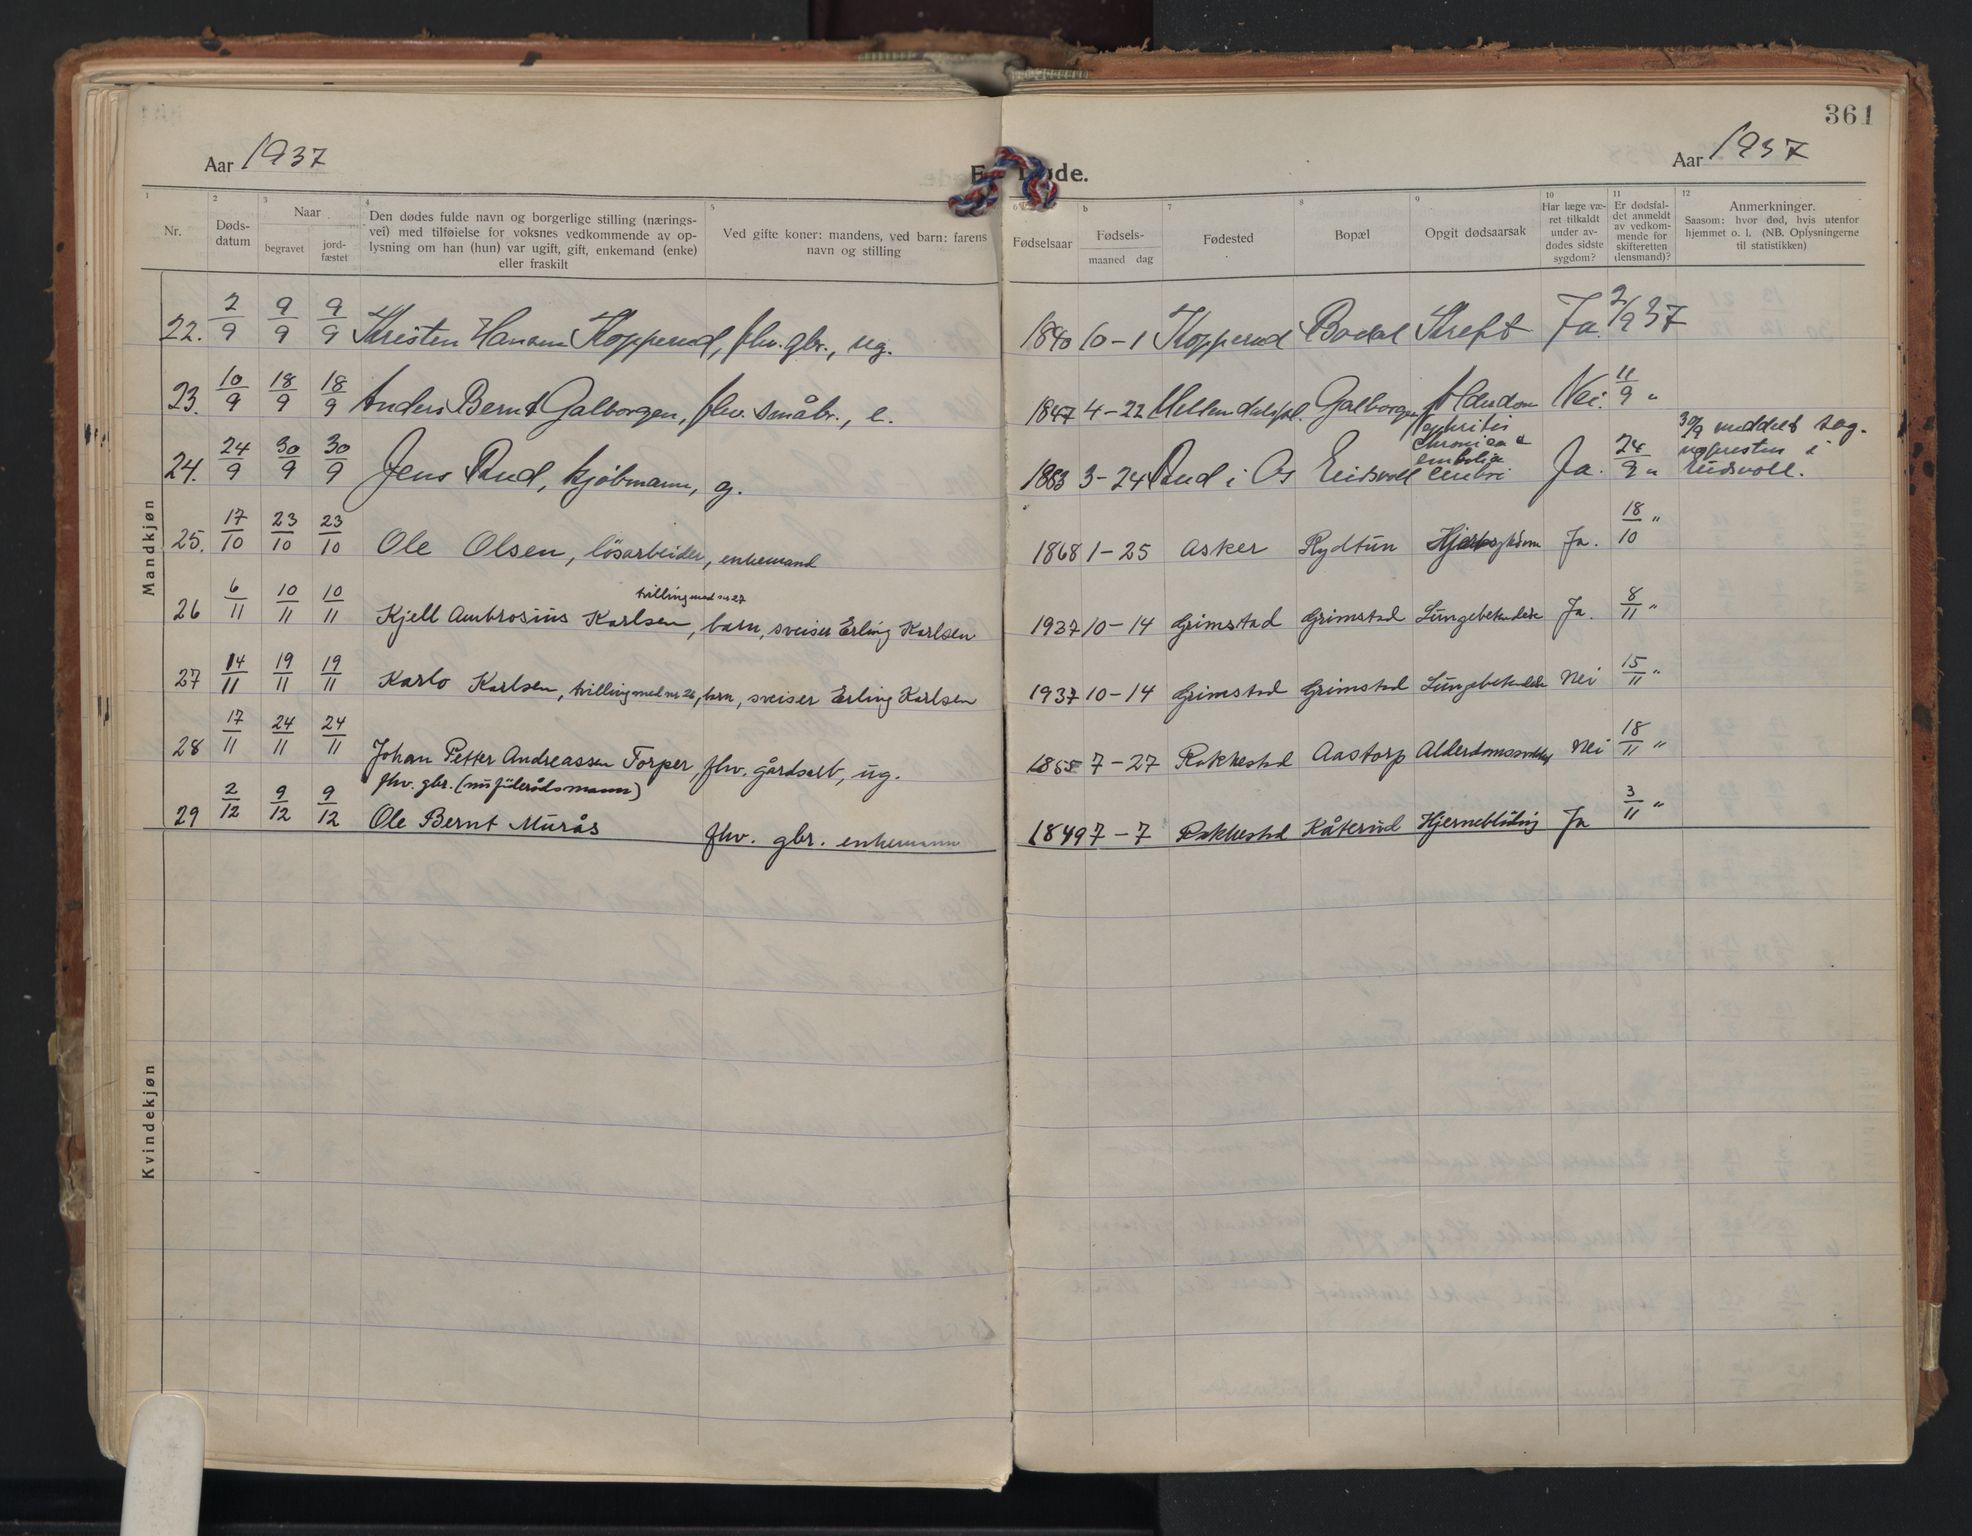 361
Aar 1937
Døde.
Aar 1937
1 2 3 4 5 6 b 7 8 9 10 11 12
Nr. | Døds-datum | Naar begravet | jord-fæstet | Den dødes fulde navn og borgerlige stilling (nærings-vei) med tilføielse for voksnes vedkommende av op-lysning om han (hun) var ugift, gift, enkemand (enke) eller fraskilt | Ved gifte koner: mandens, ved barn: farens navn og stilling | Fødselsaar | Fødsels-maaned dag | Fødested | Bopæl | Opgit dødsaarsak | Har læge væ-ret tilkaldt under av-dødes sidste sygdom? | Er dødsfal-det anmeldt av vedkom-mende for skifteretten (lensmand)? | Anmerkninger. Saasom: hvor død, hvis utenfor hjemmet o. l. (NB. Oplysningerne til statistikken)
Mandkjøn
22. 2/9 9/9 9/9 Kristen Hansen Kopperud, fhv. gbr., ug. 1840 10-1 Kopperud Bodal Kreft Ja. 2/9 37
23. 10/9 18/9 18/9 Anders Bernt Galborgen, fhv. småbr., e. 1847 4-22 Galborgen Alderdom Nei. 11/9 "
24. 24/9 30/9 30/9 Jens Rud, kjøbmann, g. 1883 3-24 Rud i Os Eidsvoll Nephritis chronica & embolia cerebri Ja. 24/9 " 30/9 meddelt sog-nepresten i Eidsvoll.
25. 17/10 23/10 23/10 Ole Olsen, løsarbeider, enkemand 1868 1-25 Asker Rydtun Hjertesykdom Ja. 18/10 "
26 6/11 10/11 10/11 Kjell Ambrosius Karlsen, tvilling med nr 27 barn, sveiser Erling Karlsen 1937 10-14 Grimstad Grimstad Lungebetendelse Ja. 8/11 "
27 14/11 19/11 19/11 Karlo Karlsen, tvilling med nr. 26, barn, sveiser Erling Karlsen 1937 10-14 Grimstad Grimstad Lungebetendelse Nei 15/11 "
28 17/11 24/11 24/11 Johan Petter Andreassen Torper, fhv. gårdsarb, ug. 1855 7-27 Rakkestad Aastorp Nei 18/11 "
29 2/12 9/12 9/12 fhv. gbr. (nu föderådsmann) Ole Bernt Murås fhv. gbr. enkemann 1849 7-7 Rakkestad Kåterud Hjerneblødning Ja 3/11 "
Kvindekjøn